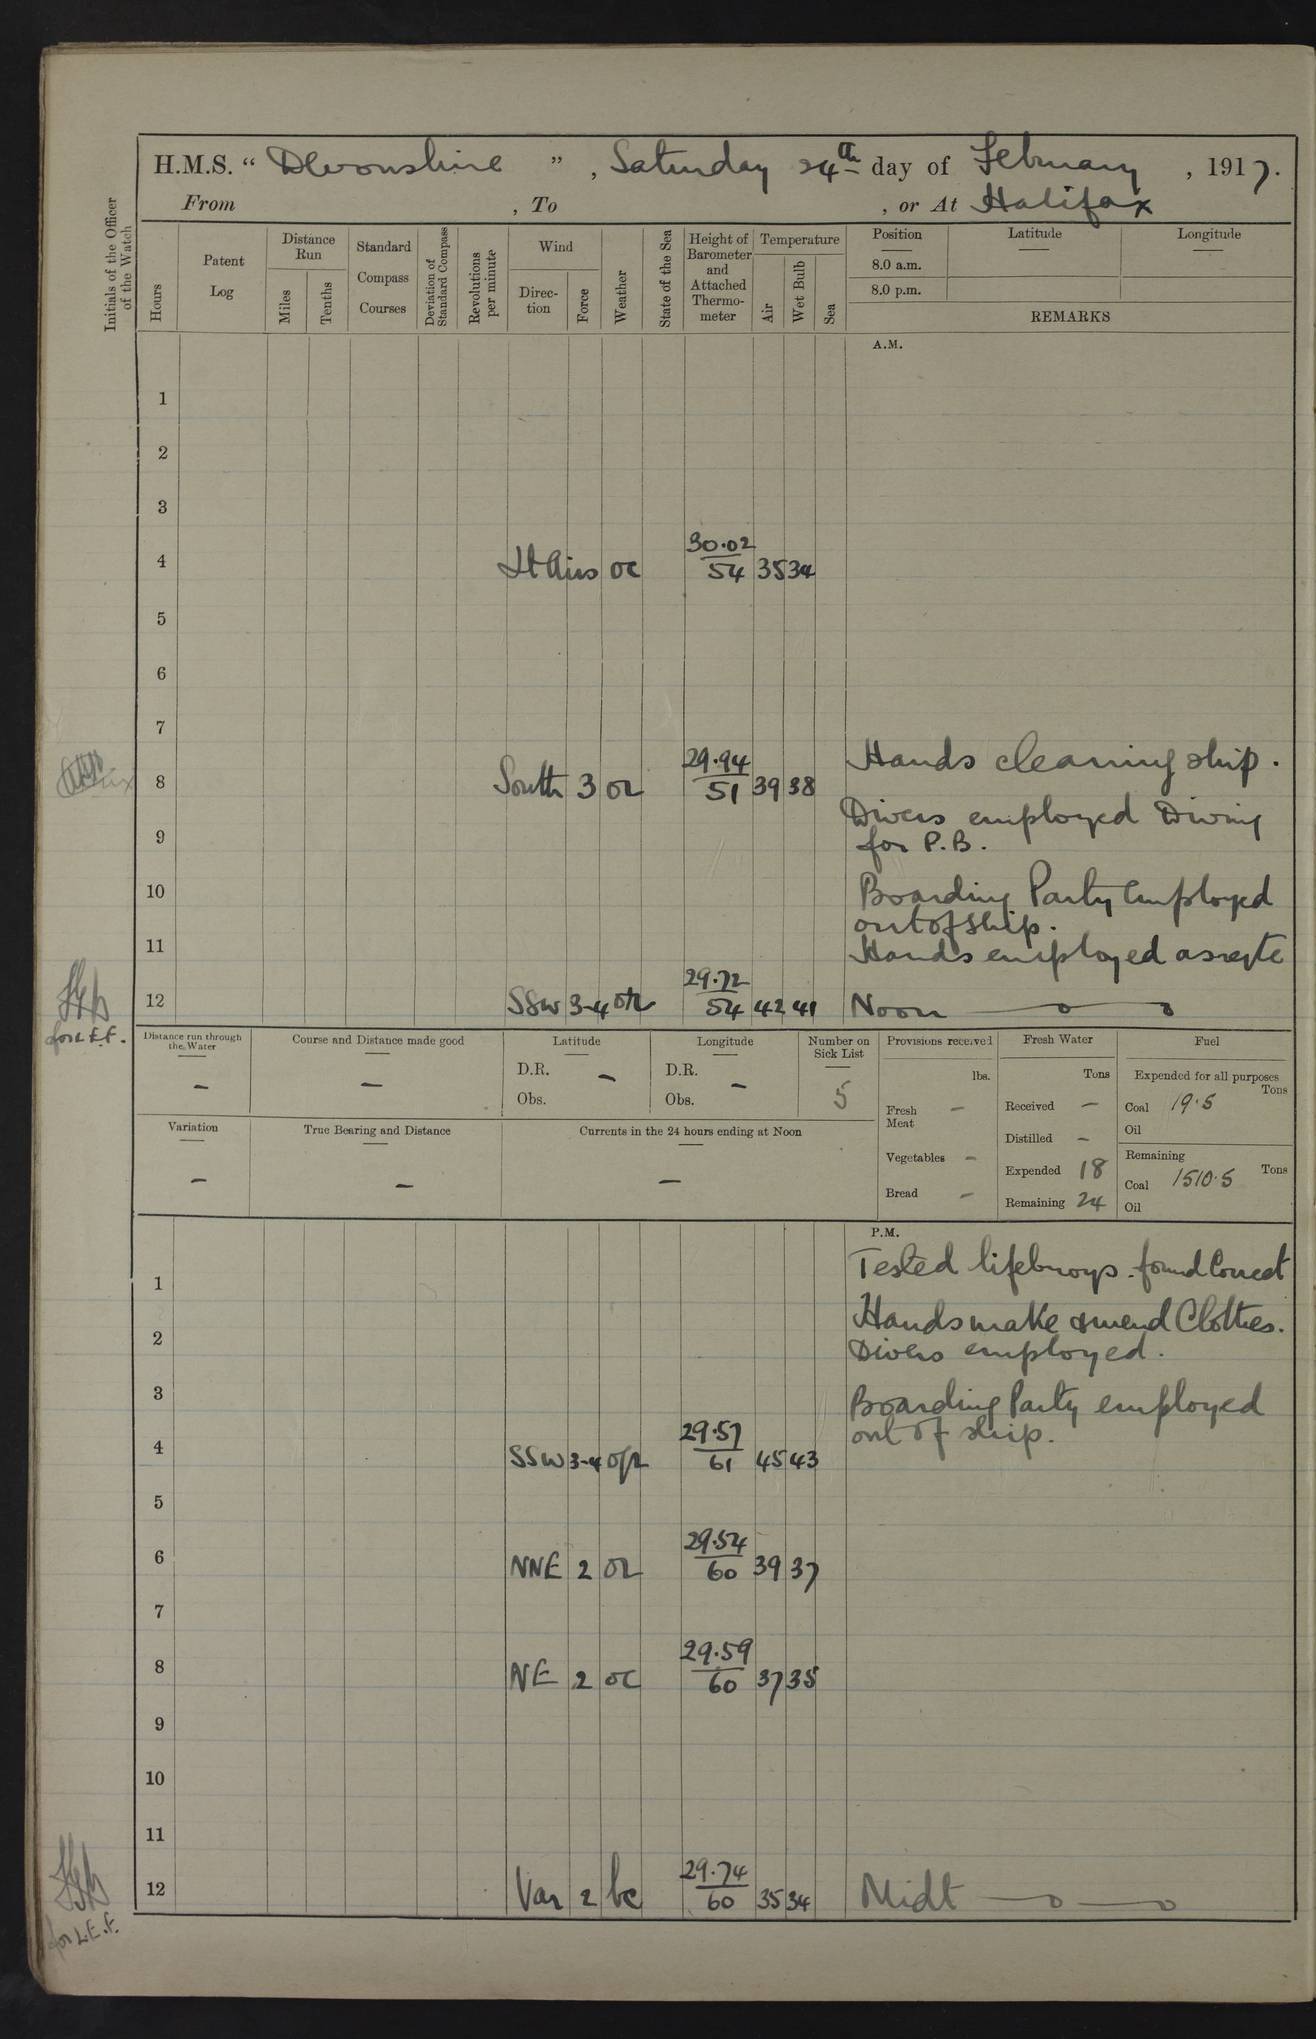 H.M.S. "Devonshire", Saturday 24th day of February, 1917.
From , To , or At Halifax
Initials of the Officer of the Watch
Hours
Patent Log
Distance Run
Miles
Tenths
Standard Compass Courses
Deviation of Standard Compass
Revolutions per minute
Wind
Direction
Force
Weather
State of the Sea
Height of Barometer and Attached Thermometer
Temperature
Air
Wet Bulb
Sea
Position Latitude Longitude
8.0 a.m.
8.0 p.m.
REMARKS
A.M.
1
2
3
4 Lt Airs oc 30.02/54 35 34
5
6
7
Hands cleaning ship.
8 South 3 or 29.94/51 39 38
Divers employed Diving
9 for P.B.
10 Boarding Party Employed
out of ship.
11 Hands employed as reqte
12 SSW 3-4 29.72/54 42 41 Noon
for L.E.F.
Distance run through the Water –
Course and Distance made good –
Latitude D.R. – Obs.
Longitude D.R. – Obs.
Number on Sick List 5
Provisions received lbs.
Fresh Meat –
Vegetables –
Bread –
Fresh Water Tons
Received –
Distilled –
Expended 18
Remaining 24
Fuel
Expended for all purposes Tons
Coal 19.5
Oil
Remaining Tons
Coal 1510.5
Oil
Variation –
True Bearing and Distance –
Currents in the 24 hours ending at Noon –
P.M.
1 Tested lifebuoys. found Correct
Hands make & mend Clothes.
2 Divers employed.
3 Boarding Party employed
out of ship.
4 SSW 3-4 29.57/61 45 43
5
6 NNE 2 or 29.54/60 39 37
7
8 NE 2 oc 29.59/60 37 35
9
10
11
12 Var 2 bc 29.74/60 35 34 Midt
for L.E.F.